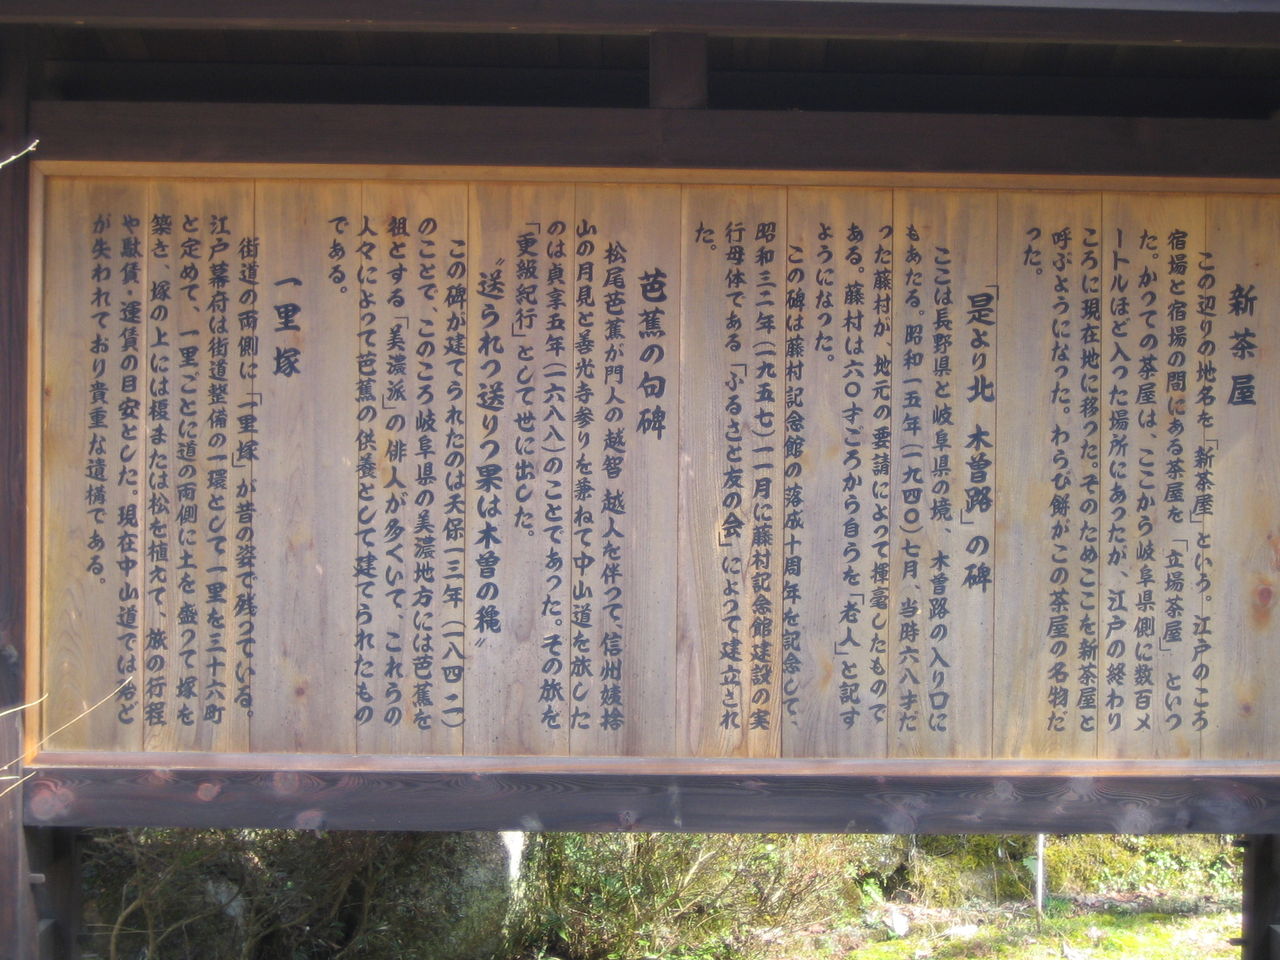 新茶屋
この辺りの地名を、「新茶屋」という。江戸のころ
宿場と宿場の間にある茶屋を「立場茶屋」といっ
た。かつての茶屋は、ここから岐阜県側に数百メ
ートルほど入った場所にあったが、江戸の終わり
ころに現在地に移った。そのためここを新茶屋と
呼ぶようになった。わらび餅がこの茶屋の名物だ
った。
「是より北 木曽路」の碑
ここは長野県と岐阜県の境、木曽路の入り口に
もあたる。昭和一五年(一九四〇)七月、当時六八才だ
った藤村が、地元の要請によって揮毫したもので
ある。藤村は六〇才ごろから自らを「老人」と記す
ようになった。
この碑は藤村記念館の落成十周年を記念して、
昭和三二年(一九五七)一一月に藤村記念館建設の実
行母体である「ふるさと友の会」によって建立され
た。
芭蕉の句碑
松尾芭蕉が門人の越智 越人を伴って、信州姨捨
山の月見と善光寺参りを兼ねて中山道を旅した
のは貞享五年(一六八八)のことであった。その旅を
「更級紀行」として世に出した。
〝送られつ送りつ果は木曽の穐〟
この碑が建てられたのは天保一三年(一八四二)
のことで、このころ岐阜県の美濃地方には芭蕉を
祖とする「美濃派」の俳人が多くいて、これらの
人々によって芭蕉の供養として建てられたもの
である。
一里塚
街道の両側に「一里塚」が昔の姿で残っている。
江戸幕府は街道整備の一環として一里を三十六町
と定めて、一里ごとに道の両側に土を盛って塚を
築き、塚の上には榎または松を植えて、旅の行程
や駄賃・運賃の目安とした。現在中山道では殆ど
が失われており貴重な遺構である。